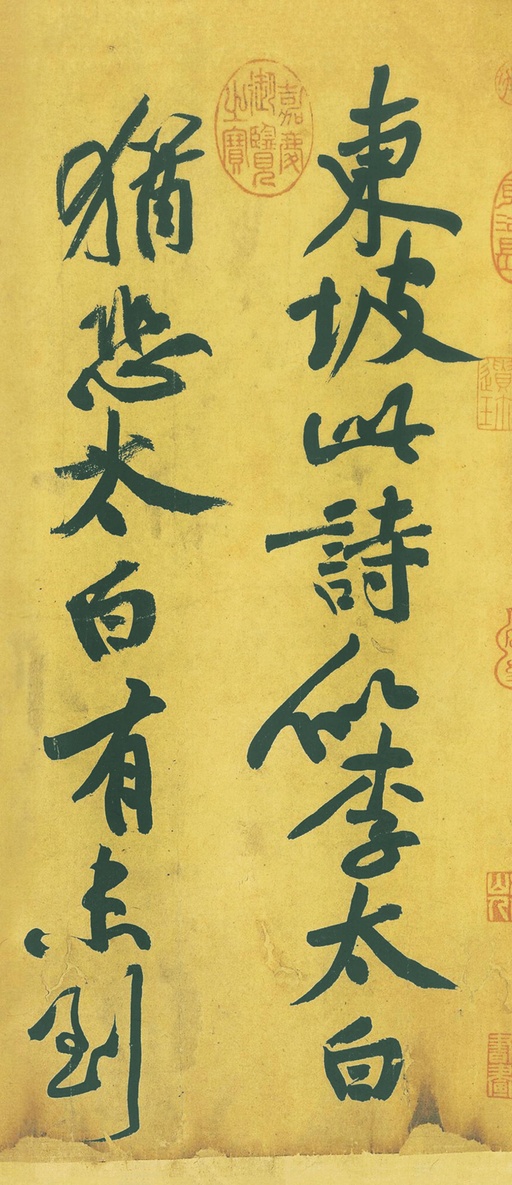 東坡此詩似李太白
嘉慶御覽之寶
猶恐太白有未到